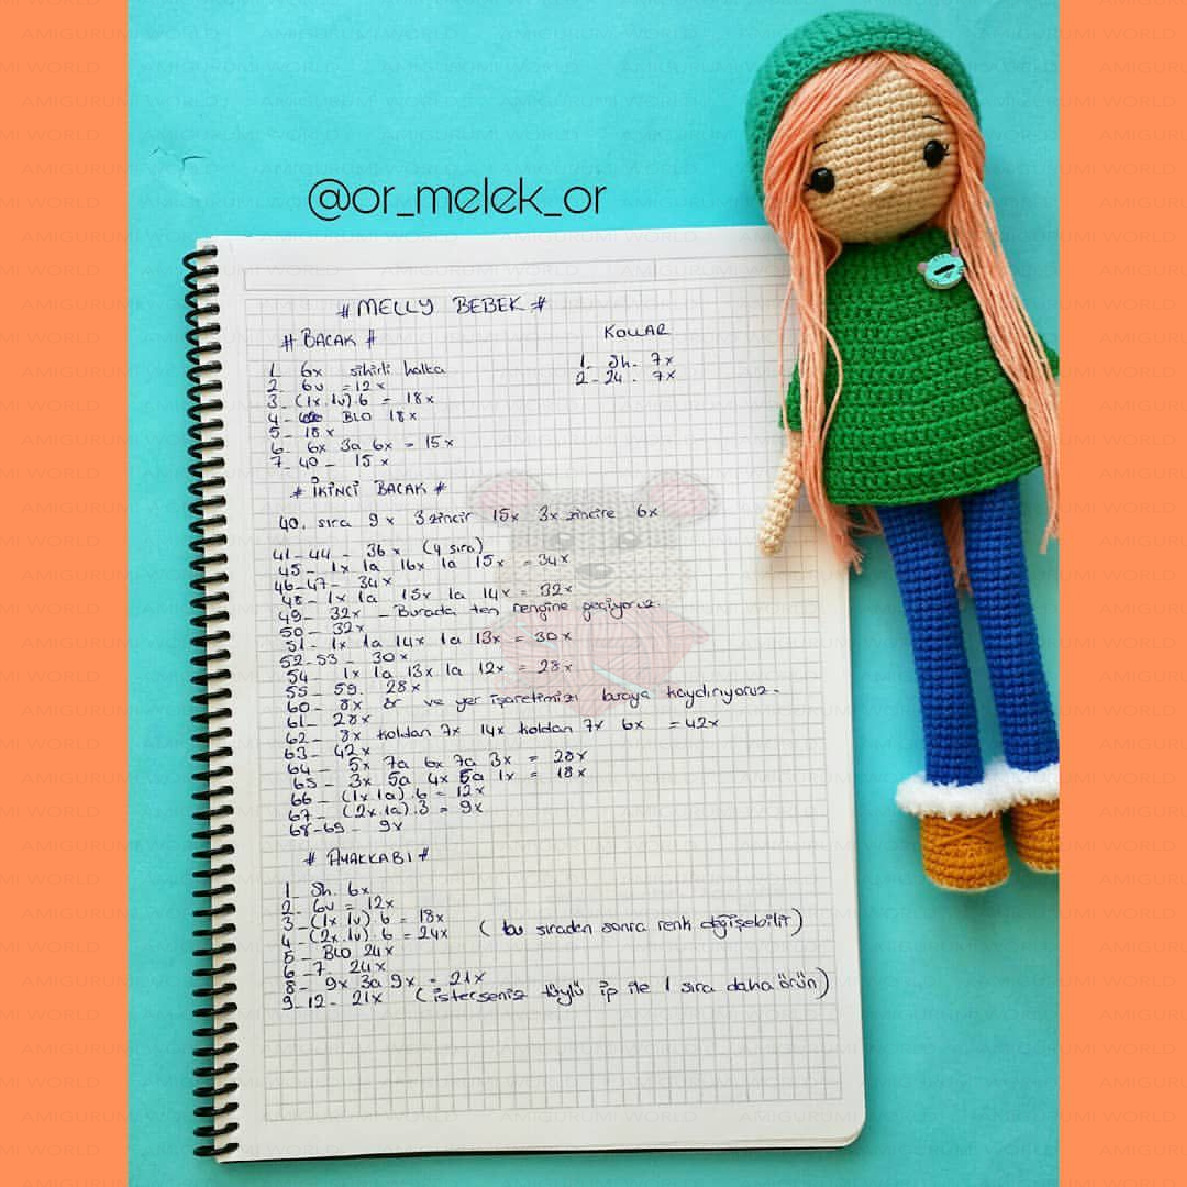 @or_melek_or
# MELLY BEBEK #
# BACAK #
1. 6x sihirli halka
2. 6v = 12x
3- (1x.1v).6 = 18x
4- BLO 18x
5- 18x
6. 6x 3a 6x = 15x
7-40- 15x
KOLLAR
1. Sh. 7x
2-24. 7x
# İKİNCİ BACAK #
40. sıra 9x 3 zincir 15x 3x zincire 6x
41-44- 36x (4 sıra)
45- 1x 1a 16x 1a 15x = 34x
46-47- 34x
48- 1x 1a 15x 1a 14x = 32x
49- 32x - Burada ten rengine geçiyoruz.
50- 32x
51- 1x 1a 14x 1a 13x = 30x
52-53- 30x
54- 1x 1a 13x 1a 12x = 28x
55-59. 28x
60- 8x ör ve yer işaretimizi buraya kaydırıyoruz.
61- 28x
62- 8x koldan 7x 14x koldan 7x 6x = 42x
63- 42x
64- 5x 7a 6x 7a 3x = 28x
65- 3x 5a 4x 5a 1x = 18x
66- (1x.1a).6 = 12x
67- (2x.1a).3 = 9x
68-69- 9x
# AYAKKABI #
1. Sh. 6x
2. 6v = 12x
3- (1x.1v).6 = 18x
4- (2x.1v).6 = 24x (bu sıradan sonra renk değişebilir)
5- BLO 24x
6-7- 24x
8- 9x 3a 9x = 21x
9-12- 21x (isterseniz tüylü ip ile 1 sıra daha örün)
AMIGURUMI WORLD